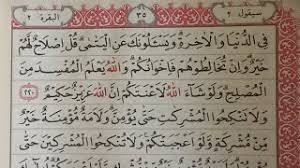 سيقول ٢ ٣٥ البقرة ٢
فِي الدُّنْيَا وَالْآخِرَةِ وَيَسْـَٔلُونَكَ عَنِ الْيَتٰمٰى قُلْ اِصْلَاحٌ لَّهُمْ
خَيْرٌ وَاِنْ تُخَالِطُوْهُمْ فَاِخْوَانُكُمْ وَاللّٰهُ يَعْلَمُ الْمُفْسِدَ مِنَ
الْمُصْلِحِ وَلَوْ شَآءَ اللّٰهُ لَاَعْنَتَكُمْ اِنَّ اللّٰهَ عَزِيْزٌ حَكِيْمٌ ﴿٢٢٠﴾
وَلَا تَنْكِحُوا الْمُشْرِكٰتِ حَتّٰى يُؤْمِنَّ وَلَاَمَةٌ مُّؤْمِنَةٌ خَيْرٌ
مِّنْ مُّشْرِكَةٍ وَّلَوْ اَعْجَبَتْكُمْ وَلَا تُنْكِحُوا الْمُشْرِكِيْنَ حَتّٰى